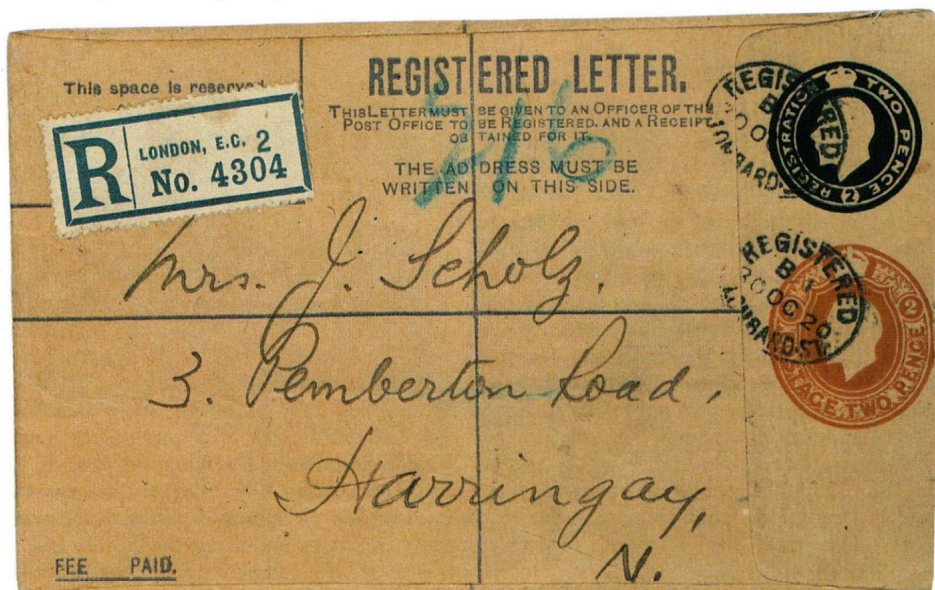 This space is reserved
REGISTERED LETTER.
THIS LETTER MUST BE GIVEN TO AN OFFICER OF THE
POST OFFICE TO BE REGISTERED. AND A RECEIPT
OBTAINED FOR IT.
THE ADDRESS MUST BE
WRITTEN ON THIS SIDE.
R
LONDON, E.C. 2
No. 4304
REGISTRATION TWO PENCE (2)
REGISTERED
B
LOMBARD ST
REGISTERED
B 1
20 OC 20
LOMBARD ST
POSTAGE TWO PENCE
Mrs. J. Scholz.
3. Pemberton Road,
Harringay,
N.
FEE PAID.